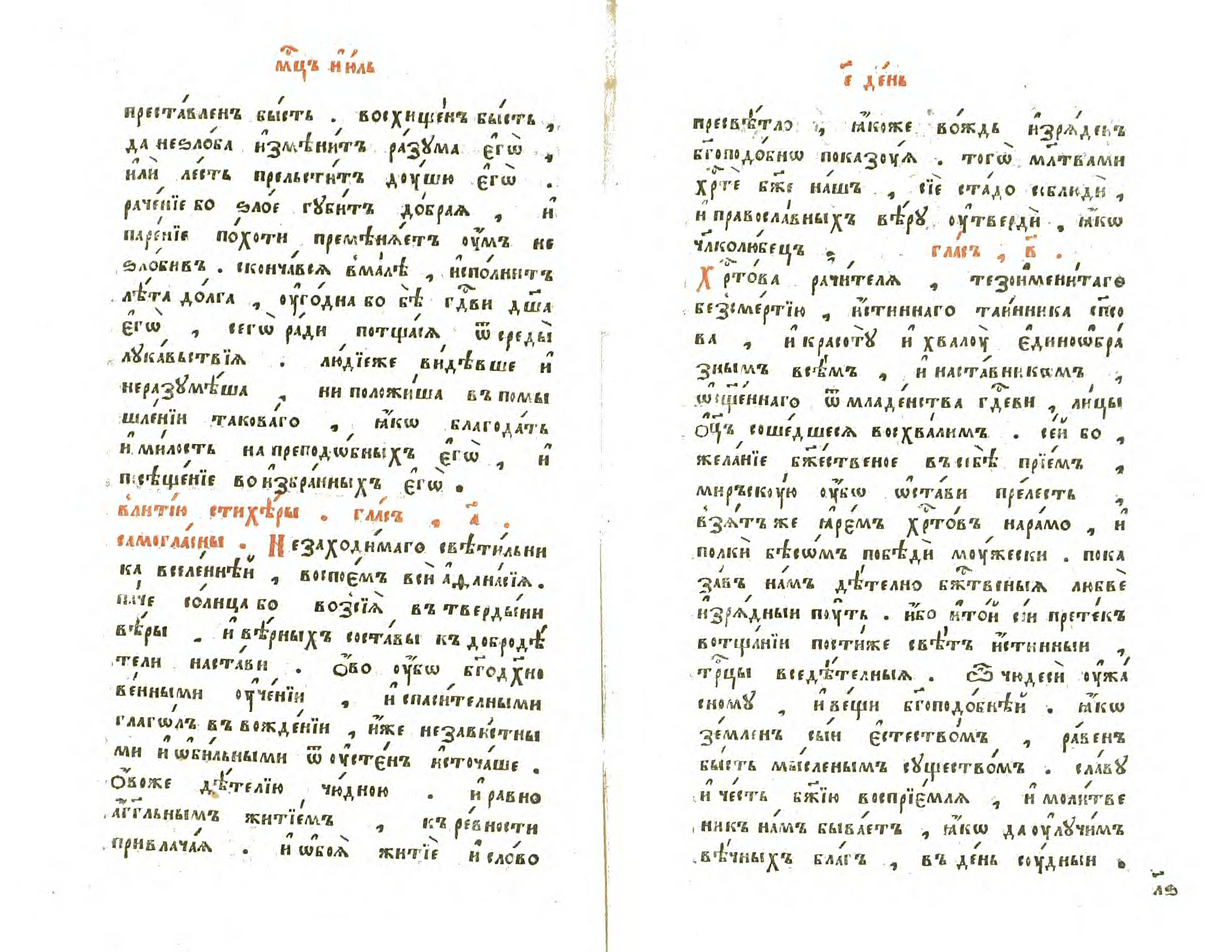 мⷭ҇цъ и҆ю́ль
преста́вленъ бы́сть . восхище́нъ бы́сть ,
да неѕло́ба и҆змѣни́тъ ра́зума є҆гѡ̀ ,
и҆лѝ ле́сть прельсти́тъ дꙋ́шю є҆гѡ̀ .
раче́нїе бо ѕло́е гꙋ́битъ до́браѧ , и҆
паре́нїе по́хоти премѣнѧ́етъ ᲂу҆́мъ не
ѕло́бивъ . сконча́всѧ вма́лѣ , и҆спо́лнитъ
лѣ́та до́лга , ᲂу҆го́дна бо бѣ̀ гдⷭ҇ви дш҃а
є҆гѡ̀ , сегѡ̀ ра́ди потща́сѧ , ѿ среды̀
лꙋка́вьствїѧ . лю́дїеже ви́дѣвше и҆
неразꙋмѣ́ша , ни положи́ша въ помы
шле́нїи такова́го , ꙗ҆́кѡ благода́ть
и҆ ми́лость на преподѡ́бныхъ є҆гѡ̀ , и҆
посѣще́нїе во и҆збра́нныхъ є҆гѡ̀ .
влитїю̀ стихѣ́ры . гла́съ , а҃ .
самогла́сны . Незаходи́маго свѣти́льни
ка вселе́ннѣй , воспое́мъ всѝ а҆ѳана́сїѧ .
па́че со́лнца бо возсїѧ̀ въ тверды́ни
вѣ́ры , и҆ вѣ́рныхъ соста́вы къ добродѣ́
тели наста́ви . Ѻ҆́во ᲂу҆́бѡ бг҃одхⷪ҇но
ве́нными ᲂу҆че́нїи , и҆ спаси́тельными
глаго́лъ въ вожде́нїи , и҆́же незави́стны
ми и҆ ѡ҆би́льными ѿ ᲂу҆сте́нъ и҆сточа́ше .
Ѻ҆́воже дѣ́телїю чю́дною . и҆ ра́вно
а҆́гг҃льнымъ житїе́мъ , къ ре́вности
привлача́ѧ . и҆ ѡ҆боѧ̀ житїѐ и҆ сло́во
є҃ де́нь
пресвѣ́тло , ꙗ҆́коже во́ждь и҆зрѧ́денъ
бг҃оподо́бнѡ показꙋ́ѧ . тогѡ̀ мл҃твами
хрⷭ҇тѐ бж҃е на́шъ , сїѐ ста́до соблюдѝ ,
и҆ правосла́вныхъ вѣ́рꙋ ᲂу҆твердѝ , ꙗ҆́кѡ
чл҃колю́бецъ . гла́съ , в҃ .
Хрⷭ҇то́ва рачи́телѧ , тезоимени́таго
безсме́ртїю , и҆́стиннаго таи́нника сп҃со
ва , и҆ красотꙋ̀ и҆ хвалꙋ̀ є҆динѡѡбра́
знымъ все́мъ , и҆ наста́вникѡмъ ,
ѡ҆сщ҃е́ннаго ѿ младе́нства гдⷭ҇еви , ли́цы
ѻ҆ц҃ъ соше́дшесѧ восхва́лимъ . се́й бо ,
жела́нїе бж҃е́ственое въ себѣ̀ прїе́мъ ,
мирьскꙋ́ю ᲂу҆́бѡ ѡ҆ста́ви пре́лесть ,
взѧ́тъ же ꙗ҆ре́мъ хрⷭ҇то́въ нара́мо , и҆
полкѝ бѣсѡ́мъ побѣдѝ мꙋ́жески . пока
за́въ на́мъ дѣ́телно бжⷭ҇твеныѧ любвѐ
и҆зрѧ́дныи пꙋ́ть . и҆́бо и҆то́й сі́и прете́къ
вотща́нїи пости́же свѣ́тъ и҆́стинныи ,
трⷪ҇цы вседѣ́телныѧ . Ѽ чюдесѝ ᲂу҆жа́
сномꙋ , и҆ ве́щи бг҃оподо́бнѣй . ꙗ҆́кѡ
зе́мленъ сы́и є҆стество́мъ , ра́венъ
бы́сть мы́сленымъ сꙋщество́мъ . сла́вꙋ
и҆ че́сть бж҃їю воспрїе́млѧ , и҆ моли́тве
никъ на́мъ быва́етъ , ꙗ҆́кѡ да ᲂу҆лꙋчи́мъ
вѣ́чныхъ бла́гъ , въ де́нь сꙋ́дныи .
л҃ѕ